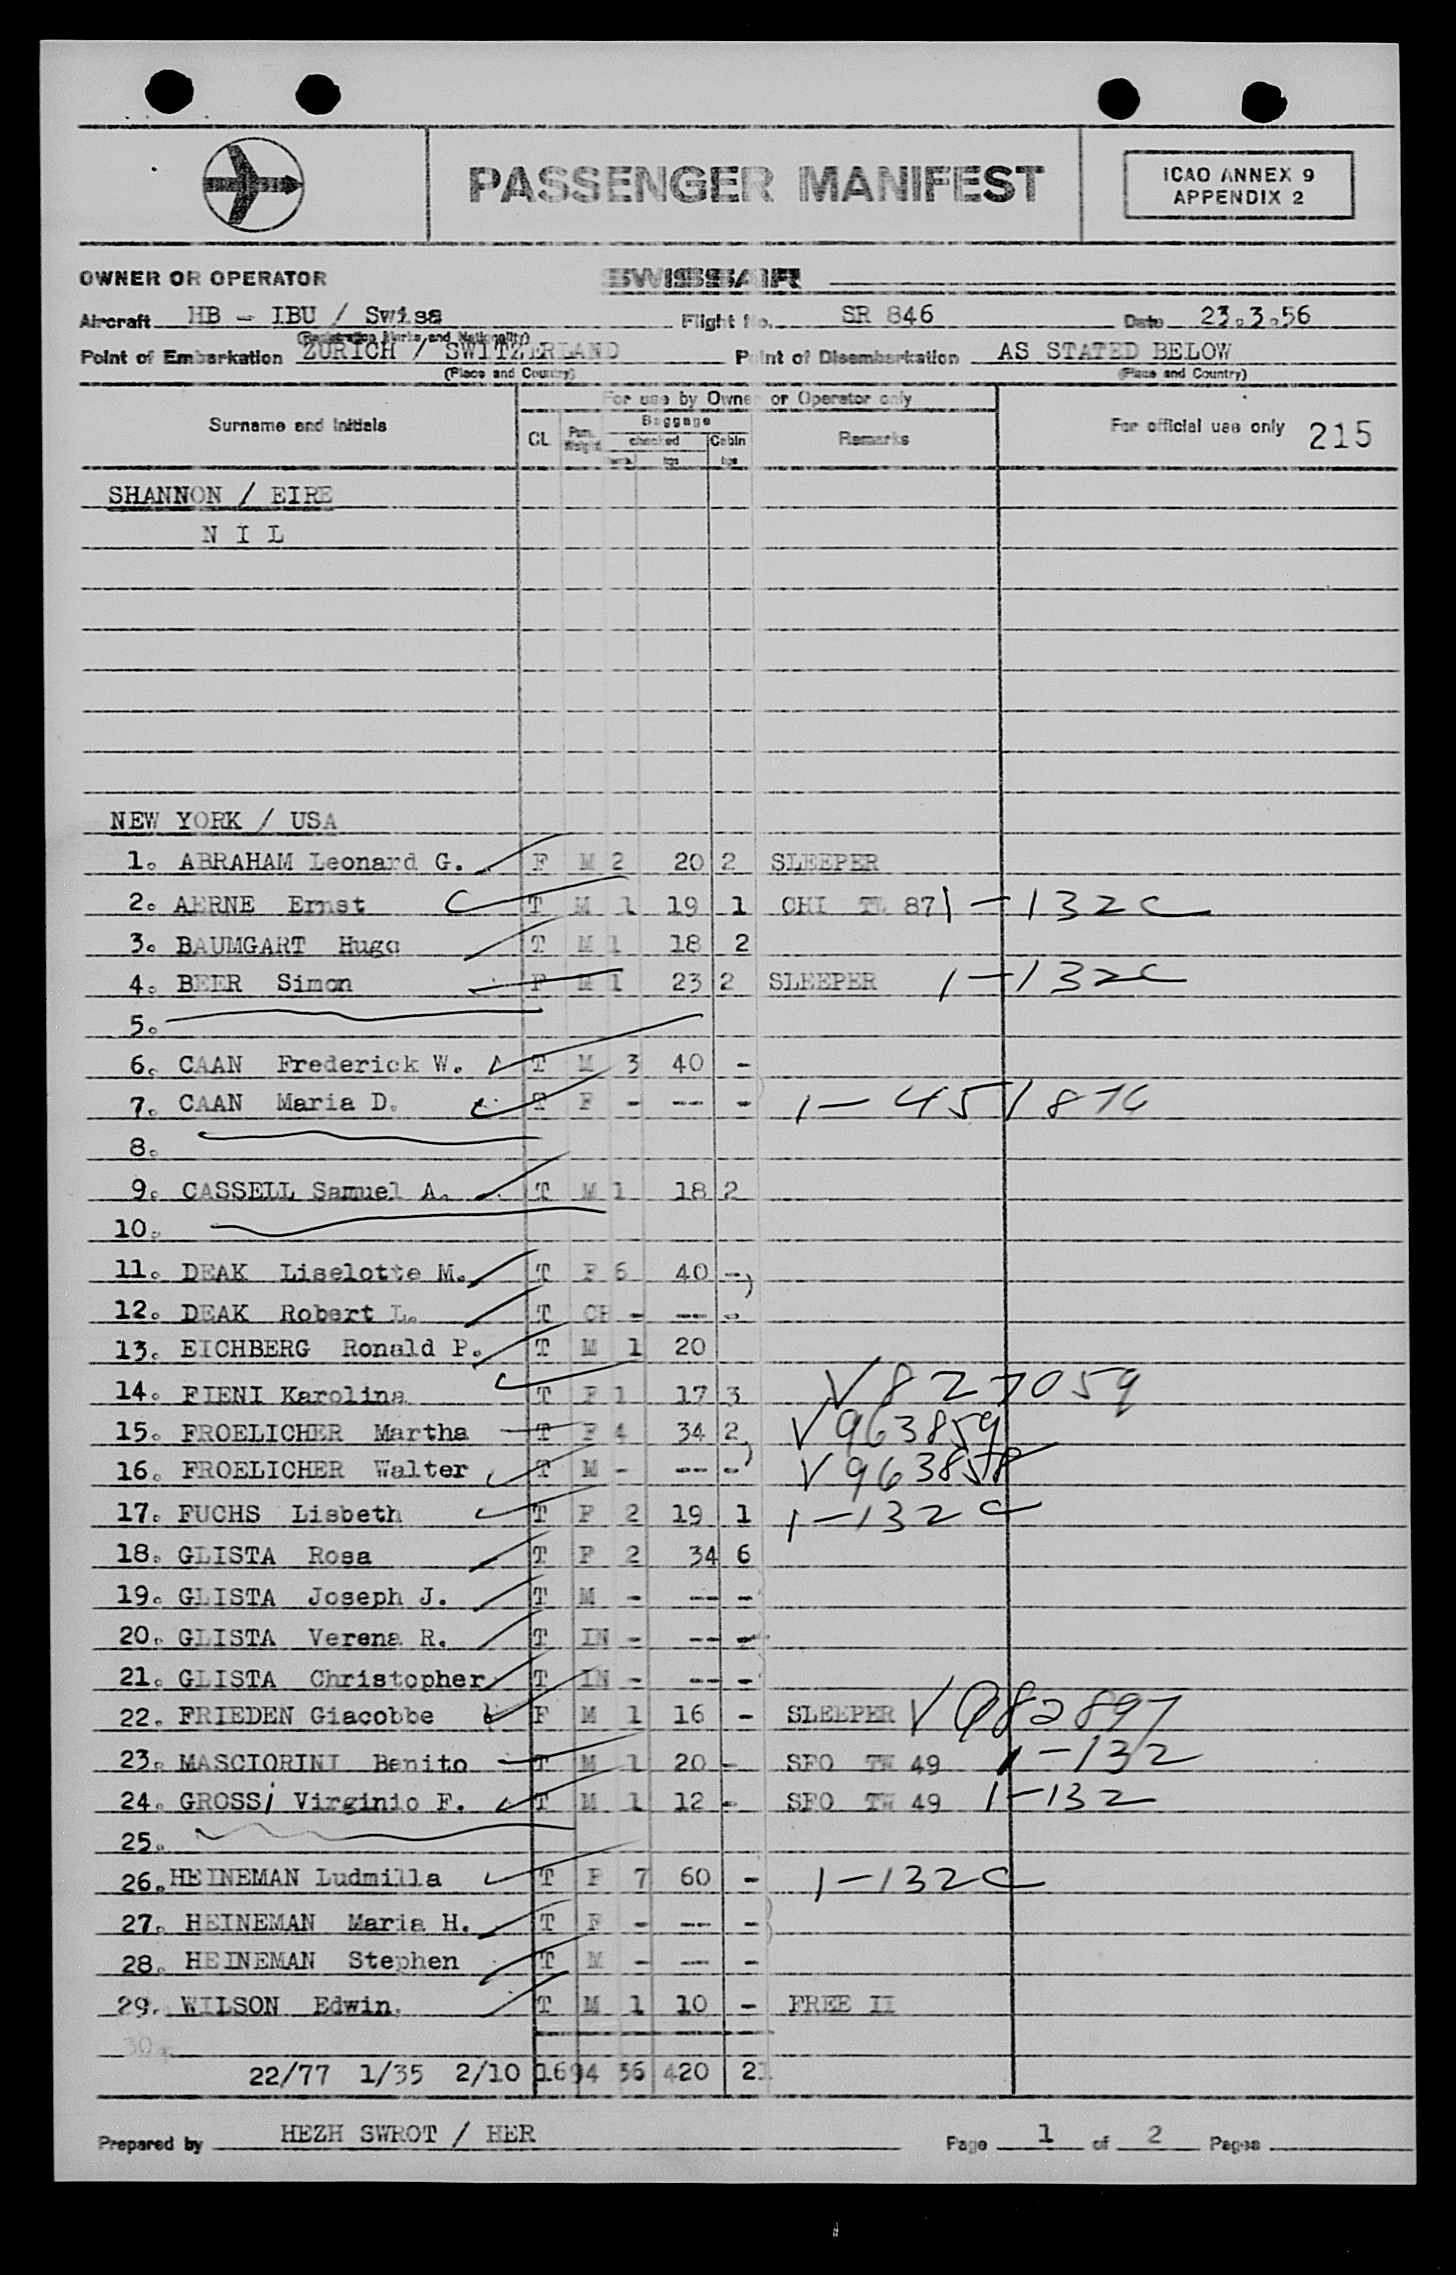 PASSENGER MANIFEST
ICAO ANNEX 9
APPENDIX 2
OWNER OR OPERATOR SWISSAIR
Aircraft HB - IBU / Swiss Flight No. SR 846 Date 23.3.56
(Registration Marks and Nationality)
Point of Embarkation ZURICH / SWITZERLAND Point of Disembarkation AS STATED BELOW
(Place and Country) (Place and Country)
For use by Owner or Operator only
Surname and Initials CL Pass. Weight Baggage Remarks For official use only 215
checked Cabin
kgs kgs
SHANNON / EIRE
N I L
NEW YORK / USA
1. ABRAHAM Leonard G. F M 2 20 2 SLEEPER
2. AERNE Ernst T M 1 19 1 CHI TW 87 1-132C
3. BAUMGART Hugo T M 1 18 2
4. BEER Simon F M 1 23 2 SLEEPER 1-132C
5.
6. CAAN Frederick W. T M 3 40 -
7. CAAN Maria D. T F - --- - 1-451876
8.
9. CASSELL Samuel A. T M 1 18 2
10.
11. DEAK Liselotte M. T F 6 40 -
12. DEAK Robert L. T CH - --- -
13. EICHBERG Ronald P. T M 1 20
14. FIENI Karolina T F 1 17 3 V827059
15. FROELICHER Martha T F 4 34 2 V963859
16. FROELICHER Walter T M - --- - V963858
17. FUCHS Lisbeth T F 2 19 1 1-132C
18. GLISTA Rosa T F 2 34 6
19. GLISTA Joseph J. T M - --- -
20. GLISTA Verena R. T IN - --- -
21. GLISTA Christopher T IN - --- -
22. FRIEDEN Giacobbe F M 1 16 - SLEEPER V982897
23. MASCIORINI Benito T M 1 20 - SFO TW 49 1-132
24. GROSSi Virginio F. T M 1 12 - SFO TW 49 1-132
25.
26. HEINEMAN Ludmilla T F 7 60 - 1-132C
27. HEINEMAN Maria H. T F - --- -
28. HEINEMAN Stephen T M - --- -
29. WILSON Edwin. T M 1 10 - FREE II
30.
22/77 1/35 2/10 1694 36 420 21
Prepared by HEZH SWROT / HER Page 1 of 2 Pages